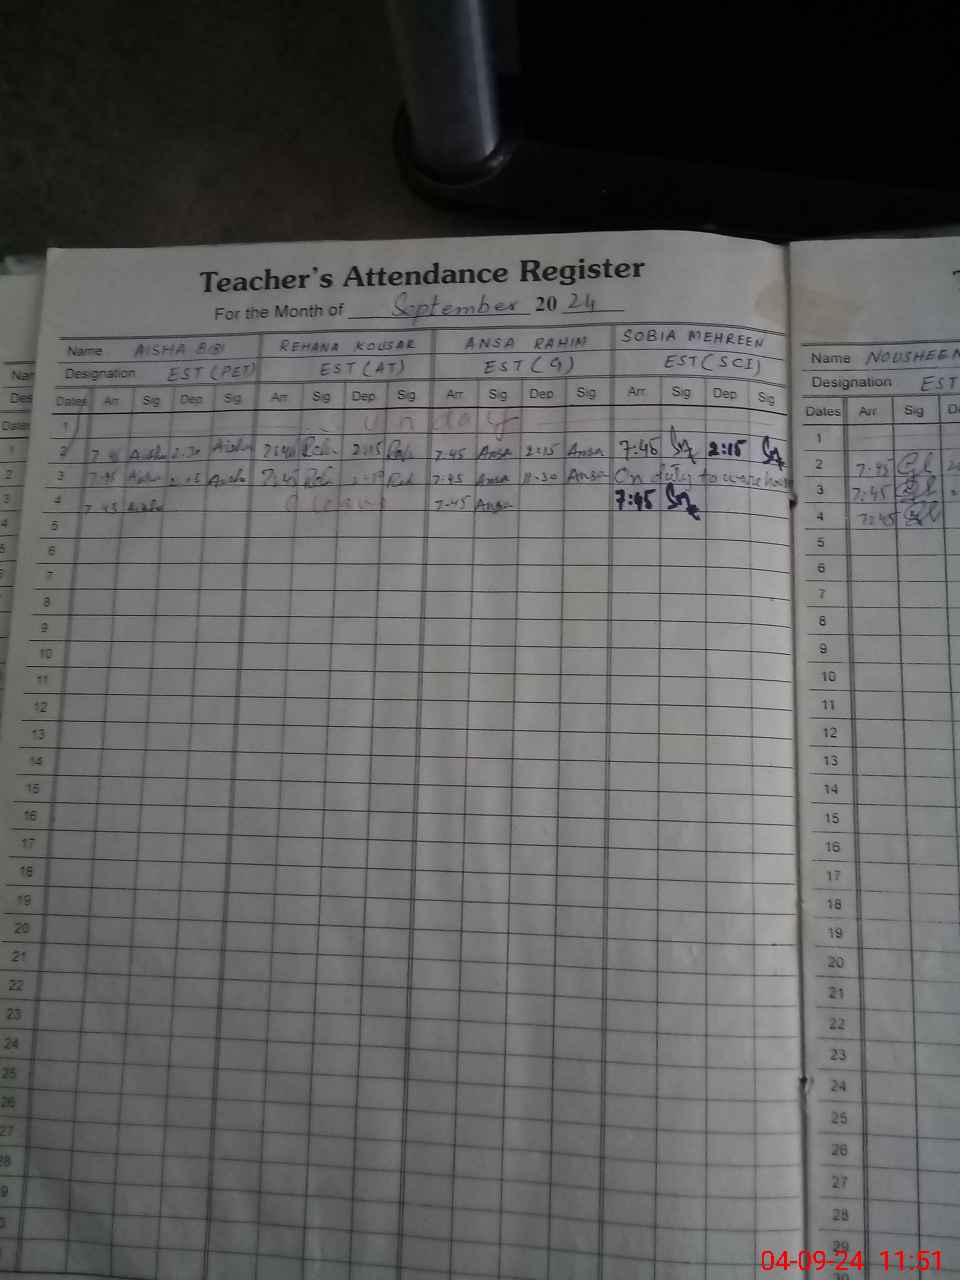 Teacher's Attendance Register
For the Month of September 20 24
Name AISHA BIBI REHANA KOUSAR ANSA RAHIM SOBIA MEHREEN
Designation EST (PET) EST (AT) EST (G) EST (SCI)
Dates Arr. Sig Dep Sig Arr. Sig Dep Sig Arr. Sig Dep Sig Arr. Sig Dep Sig
1 Sunday
2 Aisha Aisha 2:15 7:45 Ansa 2:15 Ansa 7:45 2:15
3 7:45 Aisha Aisha 7:45 7:45 Ansa 11:30 Ansa On duty to ware house
4 7:45 Aisha leave 7:45 Ansa 7:45
5
6
7
8
9
10
11
12
13
14
15
16
17
18
19
20
21
22
23
24
25
26
27
28
Name NOUSHEEN
Designation EST
Dates Arr Sig
1
2 7:45
3 7:45
4 7:45
5
6
7
8
9
10
11
12
13
14
15
16
17
18
19
20
21
22
23
24
25
26
27
28
29
04-09-24 11:51